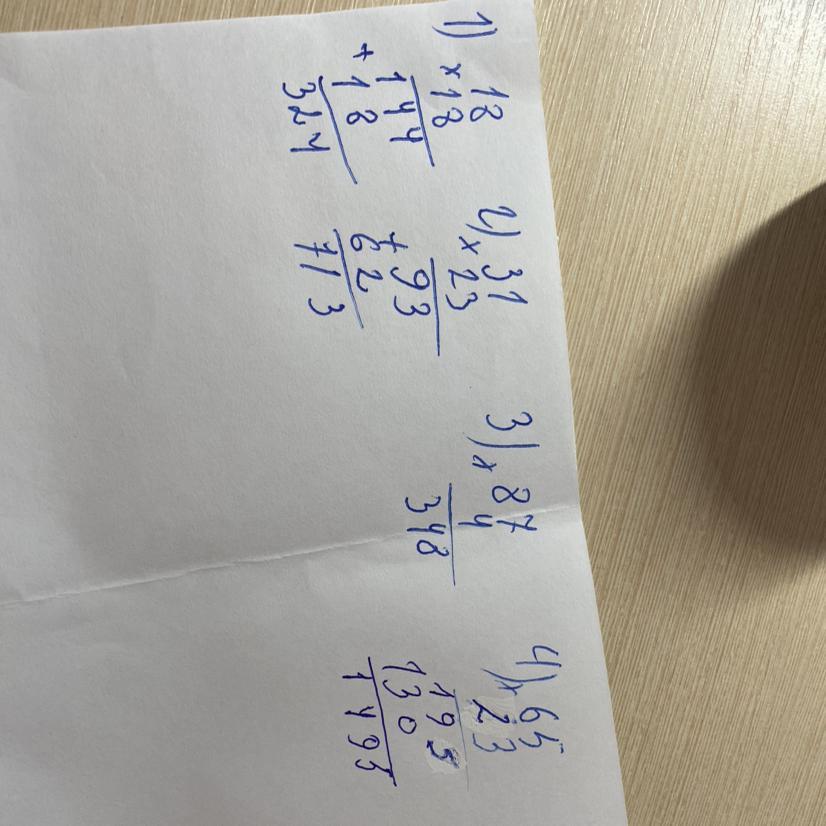 1) 18
× 18
144
+ 18
324
2) 31
× 23
93
+ 62
713
3) 87
× 4
348
4) 65
× 23
195
130
1495